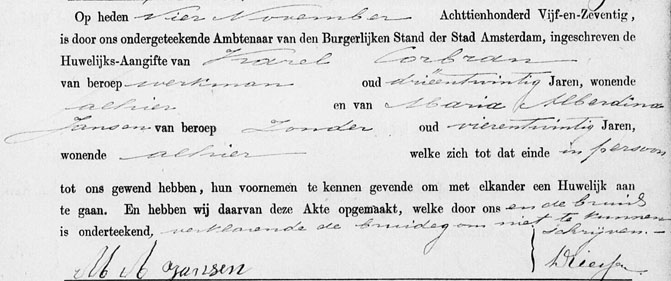 Op heden vier November Achttienhonderd Vijf-en-Zeventig,
is door ons ondergeteekende Ambtenaar van den Burgerlijken Stand der Stad Amsterdam, ingeschreven de
Huwelijks-Aangifte van Karel Corbran
van beroep werkman oud drieentwintig Jaren, wonende
alhier en van Maria Alberdina
Jansen van beroep Zonder oud vierentwintig Jaren,
wonende alhier welke zich tot dat einde in persoon
tot ons gewend hebben, hun voornemen te kennen gevende om met elkander een Huwelijk aan
te gaan. En hebben wij daarvan deze Akte opgemaakt, welke door ons en de bruid
is onderteekend, verklarende de bruidegom niet te kunnen
schrijven.—
M A Jansen